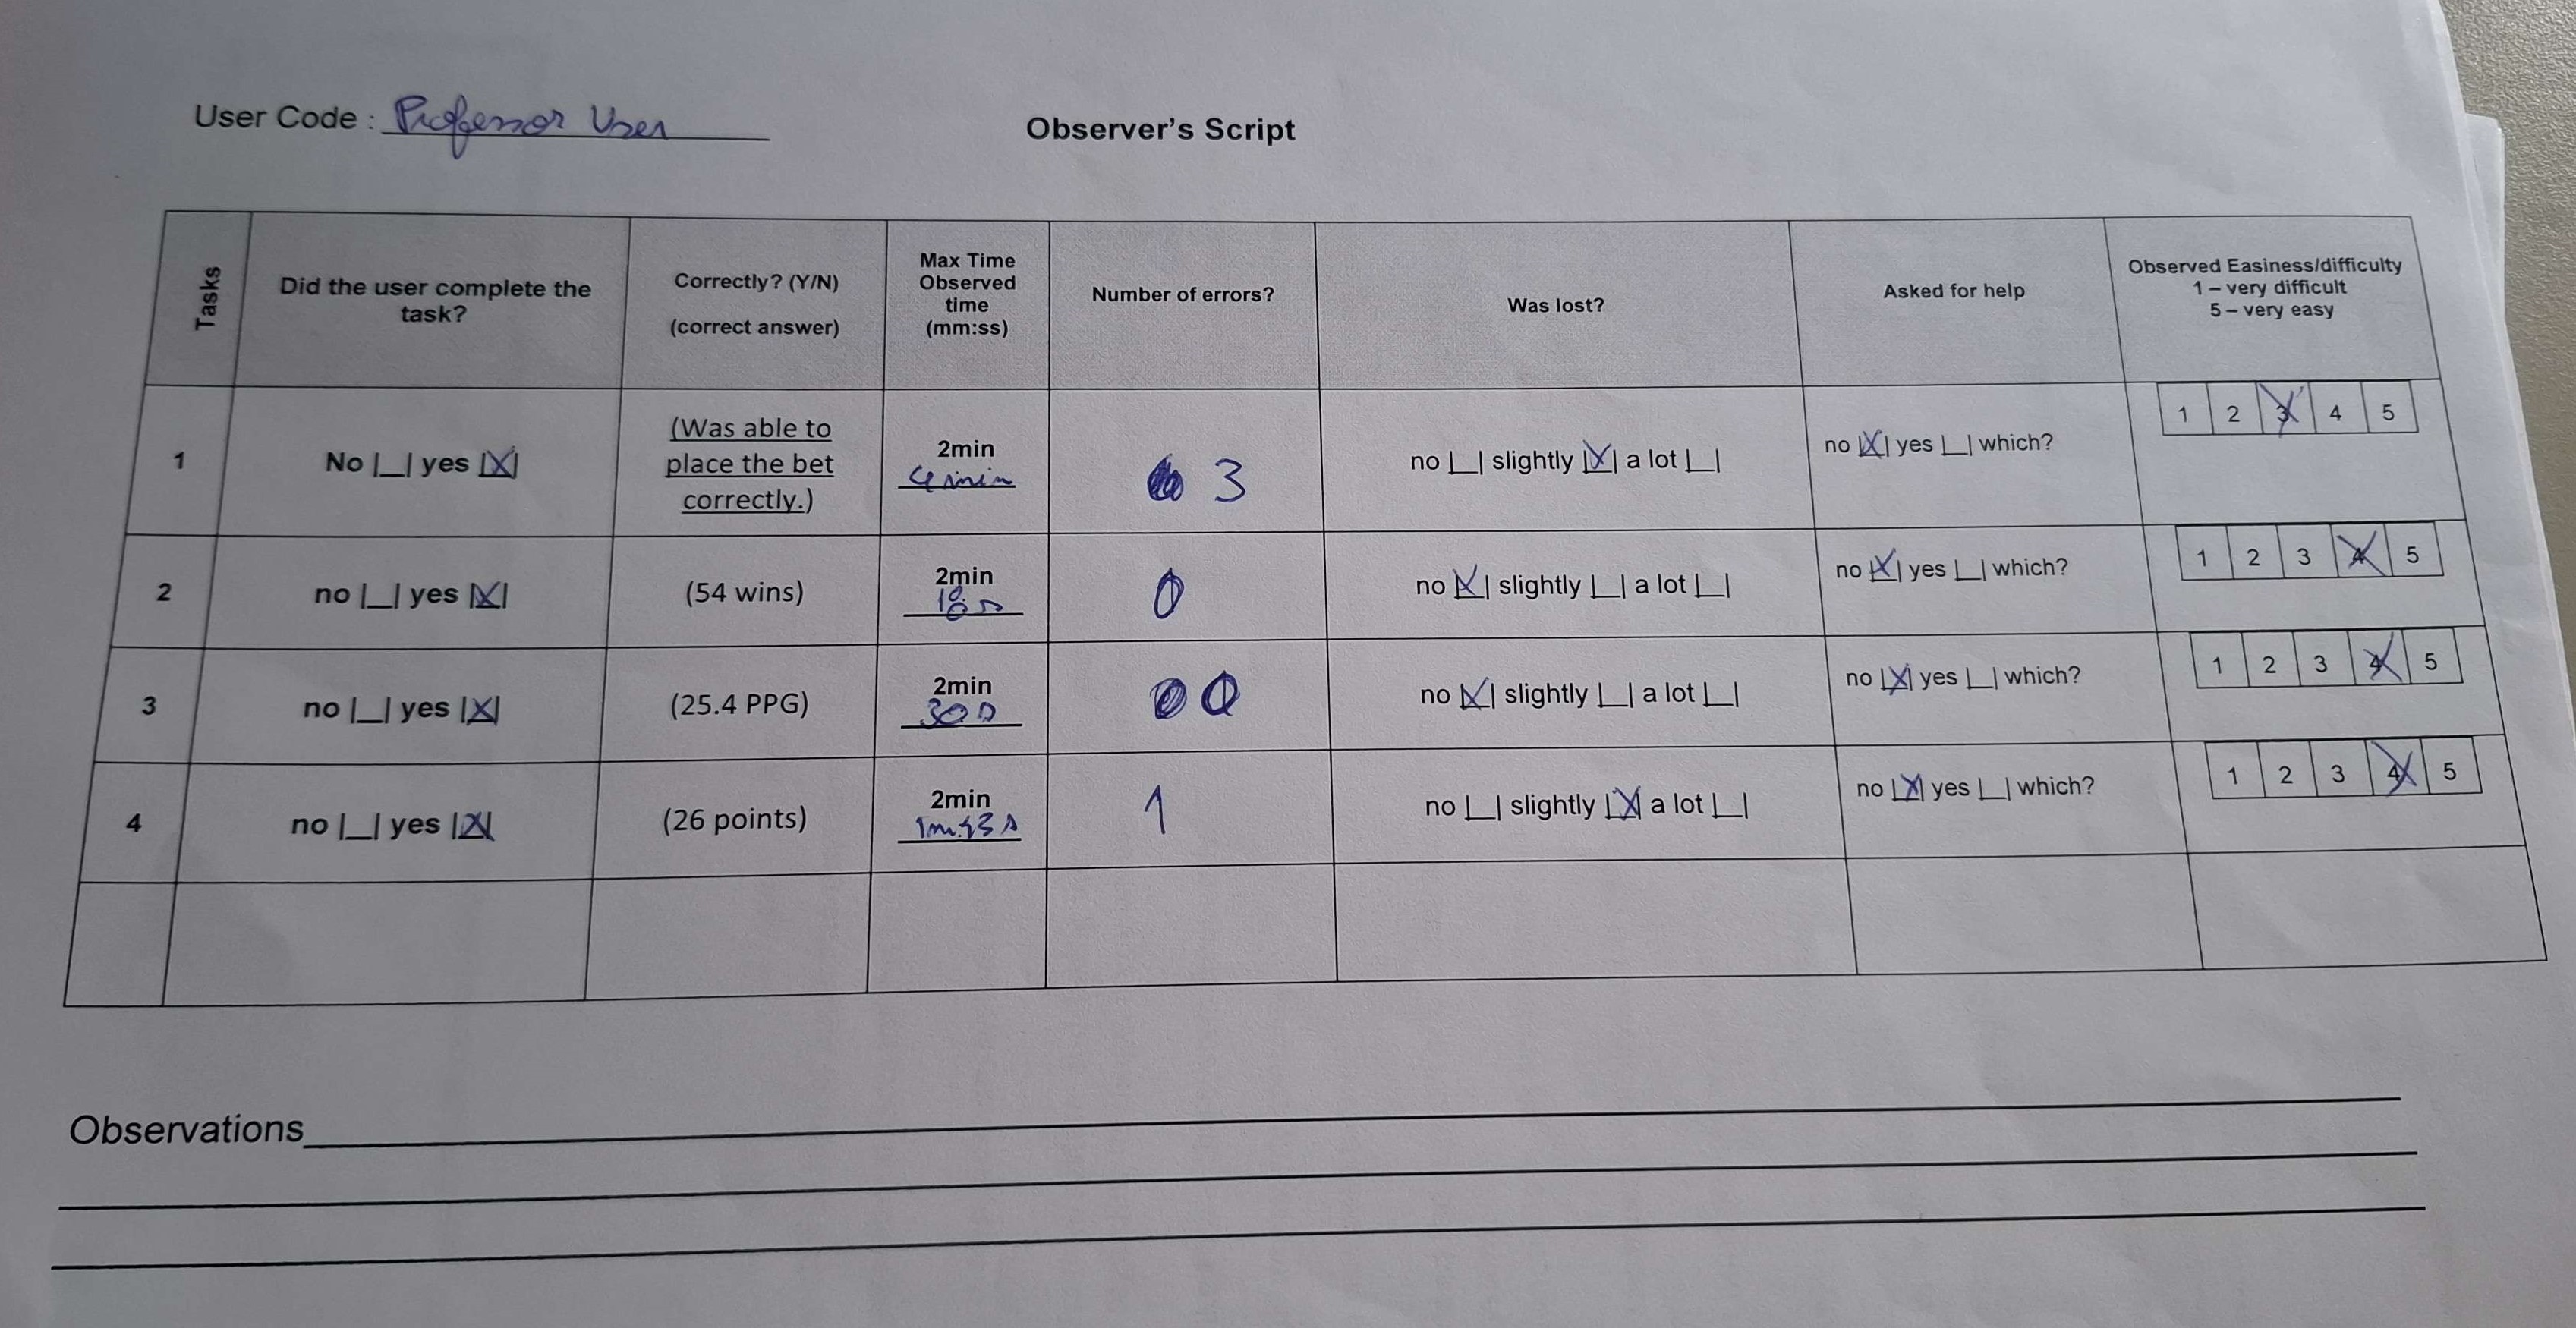 User Code : Professor User
Observer's Script
Tasks
Did the user complete the
task?
Correctly? (Y/N)
(correct answer)
Max Time
Observed
time
(mm:ss)
Number of errors?
Was lost?
Asked for help
Observed Easiness/difficulty
1 – very difficult
5 – very easy
1
No |_| yes |X|
(Was able to
place the bet
correctly.)
2min
4min
3
no |_| slightly |X| a lot |_|
no |X| yes |_| which?
1 2 3 4 5
2
no |_| yes |X|
(54 wins)
2min
18s
0
no |X| slightly |_| a lot |_|
no |X| yes |_| which?
1 2 3 4 5
3
no |_| yes |X|
(25.4 PPG)
2min
30s
0
no |X| slightly |_| a lot |_|
no |X| yes |_| which?
1 2 3 4 5
4
no |_| yes |X|
(26 points)
2min
1
no |_| slightly |X| a lot |_|
no |X| yes |_| which?
1 2 3 4 5
Observations